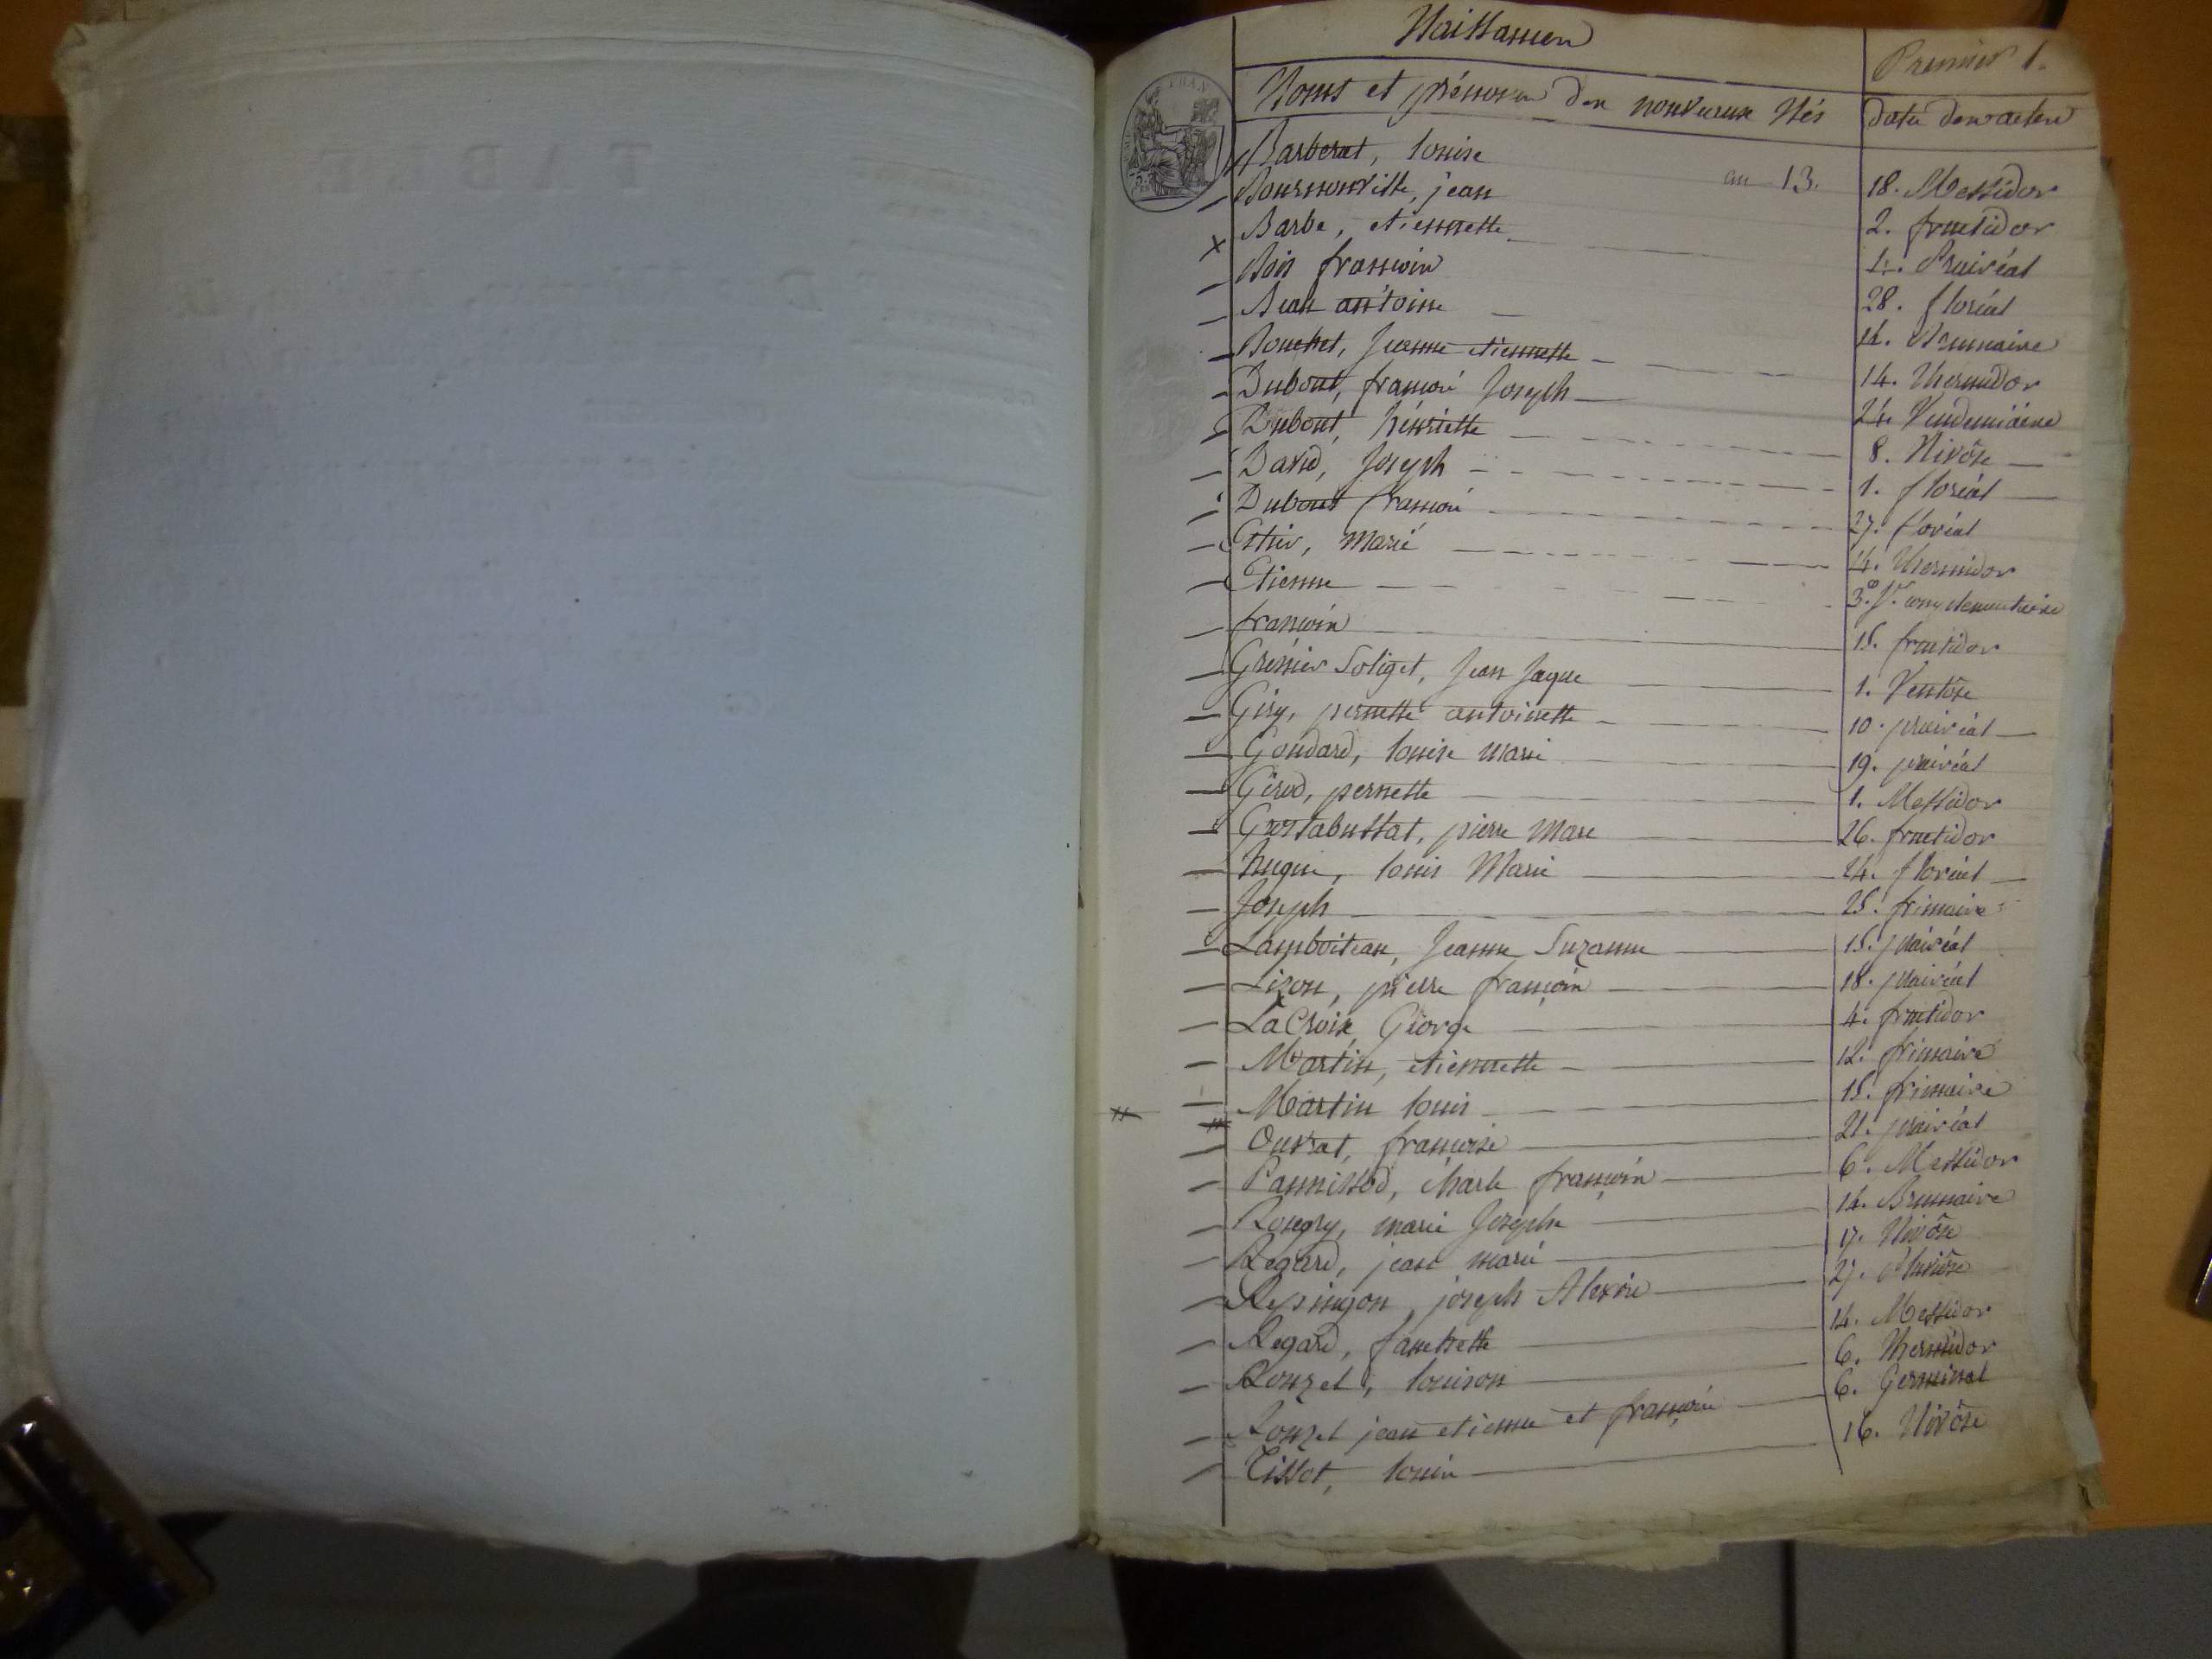 TABLE
Naissances
Premier 1.
Noms et prénoms des nouveaux Nés
date des actes
Barberat, louise an 13. 18. Messidor
Bournonville, jean 2. fructidor
Barbe, etiennette 1er. Prairéal
Bois françois 28. floréal
Bean antoine 12. Brumaire
Bouchet, Jeanne etiennette 14. thermidor
Dubout, françois Joseph 24. Vendemiaire
Dubout, hénriette 8. Nivôse
David, Joseph 1. floréal
Dubout françois 27. floréal
Estier, marie 14. thermidor
Etienne 3e. Jr. complementaire
françois 15. fructidor
Grénier Soliget, Jean Jaque 1. Ventôse
Giry, pernette antoinette 10. prairéal
Goudard, louise marie 19. prairéal
Girod, pernette 1. Messidor
Grostabussat, pierre Marc 26. fructidor
hugue, louis Marie 24. floréal
Joseph 25. frimaire
Lamboiteau, Jeanne Suzanne 15. prairéal
Lizon, pierre françois 18. prairéal
LaCroix George 4. fructidor
Martin, etiennette 12. frimaire
Martin louis 15. frimaire
Ouvrat, françoise 21. prairéal
Pannissod, charle françois 6. Messidor
Rougry, marie Josephe 14. Brumaire
Regard, jean marie 17. Nivôse
Repingon, joseph Alexis 27. Pluviôse
Regard, fanchette 14. Messidor
Rouzet, louison 6. thermidor
Rouzet jean etienne et françois 6. Germinal
Tissot, louis 16. Nivôse